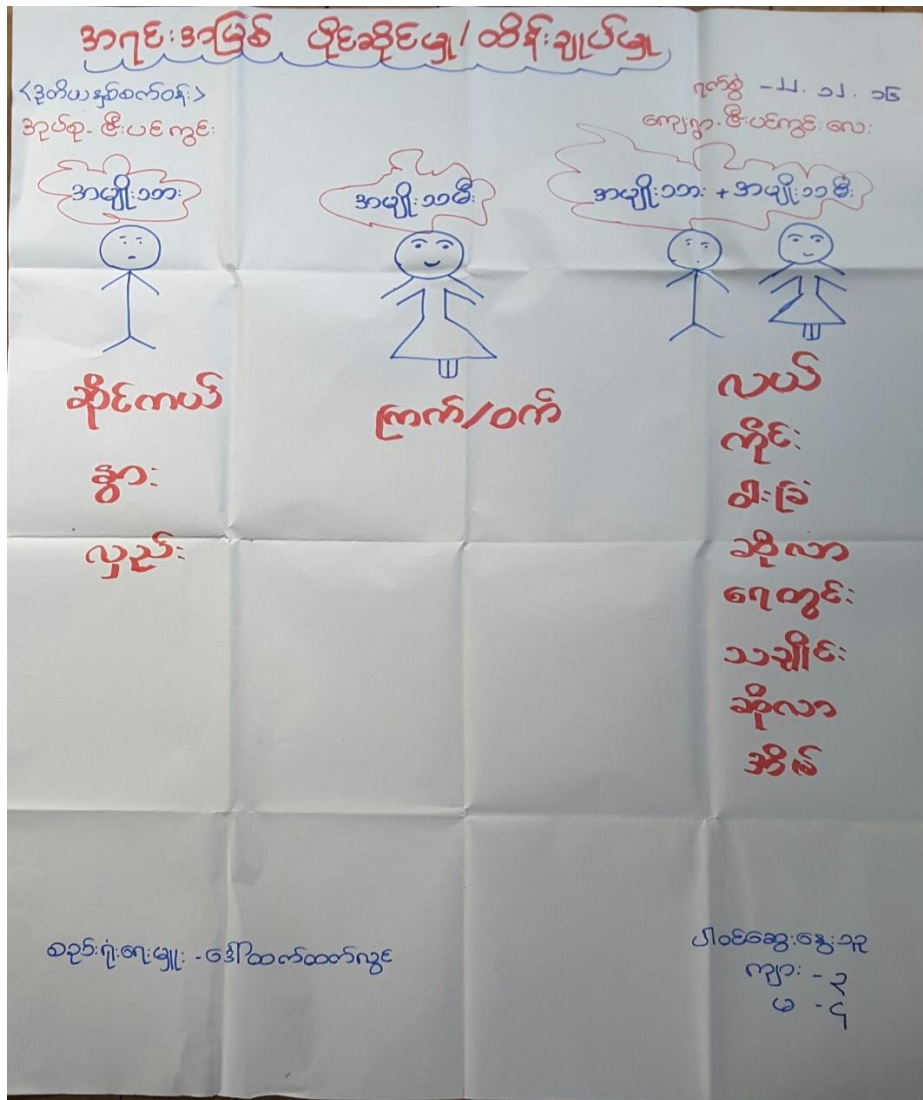 အရင်းအမြစ် ပိုင်ဆိုင်မှု/ထိန်းချုပ်မှု
<ဒုတိယနှစ်စက်ဝန်း>
ရက်စွဲ -၂၂. ၁၂. ၁၆
အုပ်စု - ဇီးပင်ကွင်း
ကျေးရွာ - ဇီးပင်ကွင်းလေး
အမျိုးသား
အမျိုးသမီး
အမျိုးသား + အမျိုးသမီး
ဆိုင်ကယ်
နွား
လှည်း
ကြက်/ဝက်
လယ်
ကိုင်း
ဝါးခြံ
ဆိုလာ
ရေတွင်း
သချိုင်း
ဆိုလာ
အိမ်
စည်းရုံးရေးမှူး - ဒေါ်ထက်ထက်လွင်
ပါဝင်ဆွေးနွေးသူ
ကျား - ၃
မ - ၄